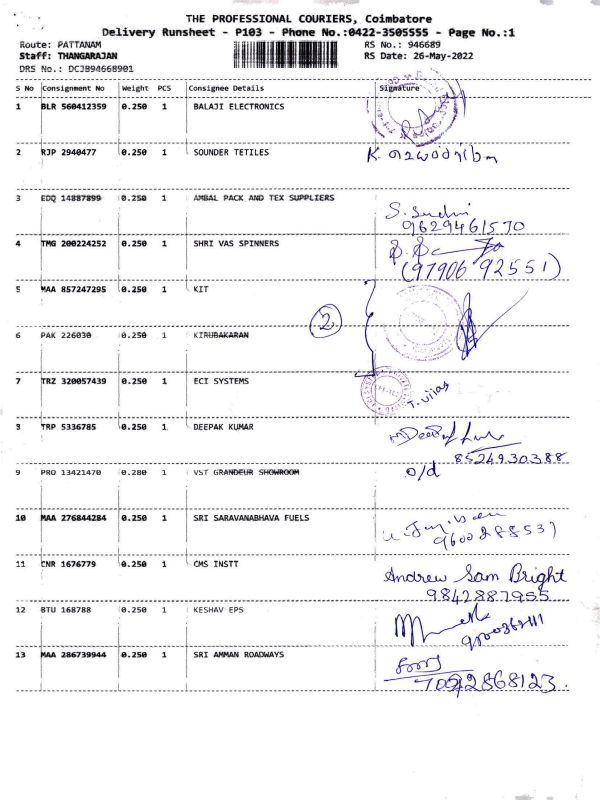 THE PROFESSIONAL COURIERS, Coimbatore
Delivery Runsheet - P103 - Phone No.:0422-3505555 - Page No.:1
Route: PATTANAM RS No.: 946689
Staff: THANGARAJAN RS Date: 26-May-2022
DRS No.: DCJB94668901
S No Consignment No Weight PCS Consignee Details Signature
1 BLR 560412359 0.250 1 BALAJI ELECTRONICS
2 RJP 2940477 0.250 1 SOUNDER TETILES
3 EDQ 14887899 0.250 1 AMBAL PACK AND TEX SUPPLIERS
9629461570
4 TMG 200224252 0.250 1 SHRI VAS SPINNERS
(97906 92551)
5 MAA 857247295 0.250 1 KIT
2
6 PAK 226030 0.250 1 KIRUBAKARAN
7 TRZ 320057439 0.250 1 ECI SYSTEMS
T. vijas
3 TRP 5336785 0.250 1 DEEPAK KUMAR
8524930388
9 PRO 13421470 0.280 1 VST GRANDEUR SHOWROOM o/d
10 MAA 276844284 0.250 1 SRI SARAVANABHAVA FUELS
11 CNR 1676779 0.250 1 CMS INSTT
Andrew Sam Bright
9842887955
12 BTU 168788 0.250 1 KESHAV EPS
13 MAA 286739944 0.250 1 SRI AMMAN ROADWAYS